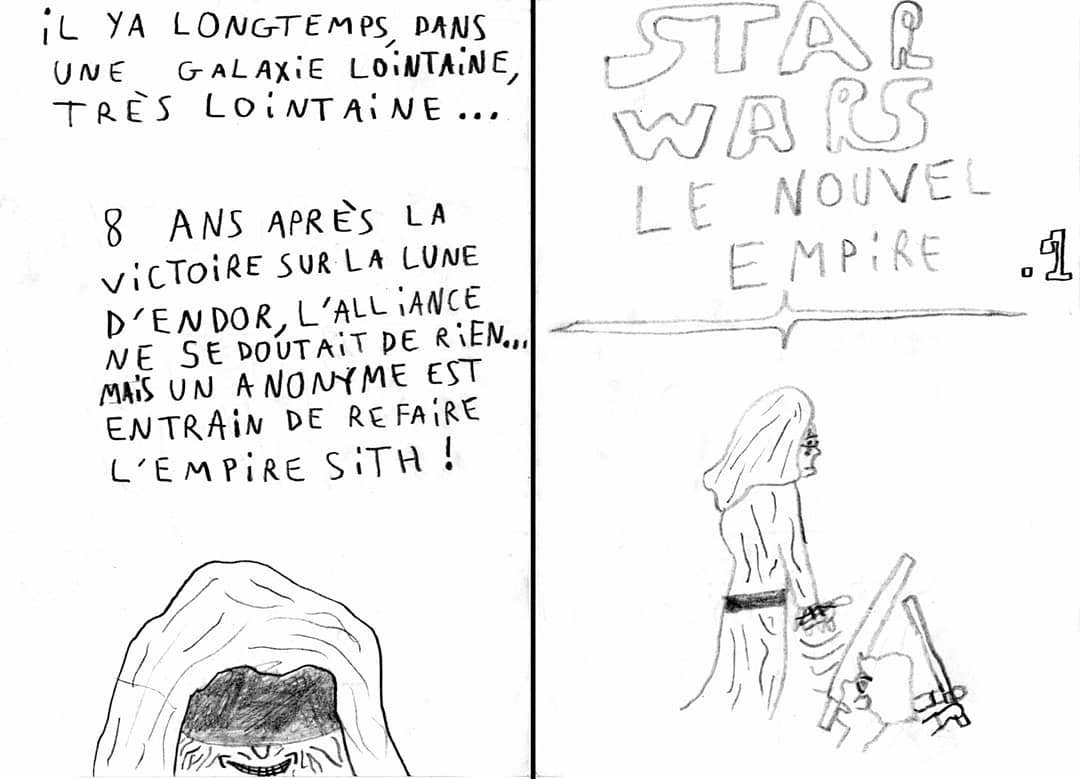 iL YA LONGTEMPS, DANS
UNE GALAXiE LOiNTAiNE,
TRÈS LOiNTAiNE...
8 ANS APRÈS LA
ViCTOiRE SUR LA LUNE
D'ENDOR, L'ALLiANCE
NE SE DOUTAiT DE RiEN...
MAiS UN ANONYME EST
ENTRAiN DE REFAiRE
L'EMPiRE SiTH !
STAR
WARS
LE NOUVEL
EMPiRE
.1